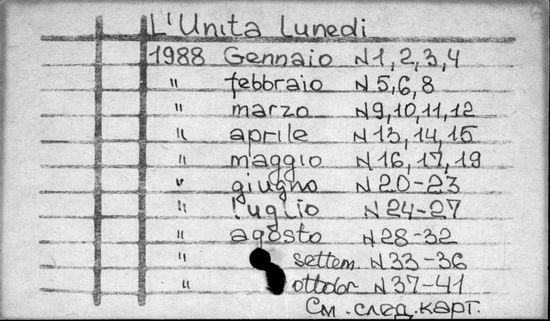 L'Unita lunedi
1988 Gennaio N1,2,3,4
" febbraio N5,6,8
" marzo N9,10,11,12
" aprile N13,14,15
" maggio N16,17,19
" giugno N20-23
" luglio N24-27
" agosto N28-32
" settem. N33-36
" ottobr N37-41
См.след.карт.